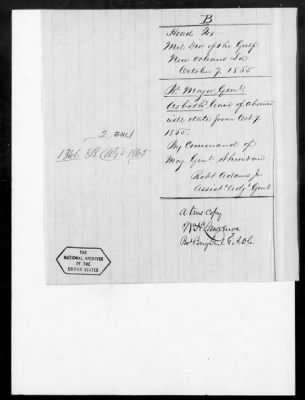 B
Head Qrs
Mil Div of the Gulf
New Orleans La
October 7, 1865
Bt. Major Genl
Asboth leave of absence
will date from Oct 7.
1865.
By Command of
Maj Genl Sheridan
Robt Adams Jr
Assist. Adjt Genl
a true copy
2 encl
1865
THE
NATIONAL ARCHIVES
OF THE
UNITED STATES